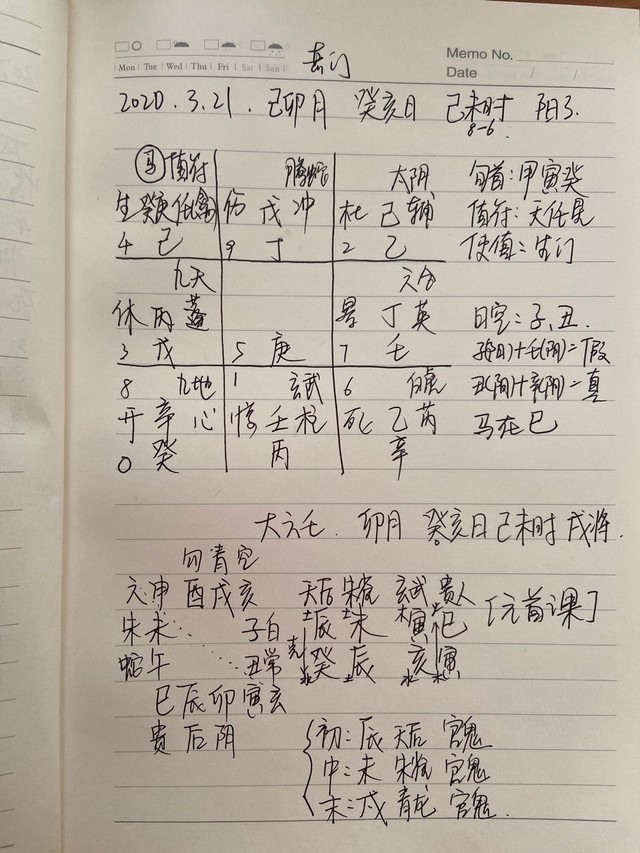 Mon Tue Wed Thu Fri Sat Sun
奇门
Memo No.
Date / /
2020.3.21. 己卯月 癸亥日 己未时 阳3.
8-6
马 值符 腾蛇 太阴 旬首:甲寅癸
生 癸庚 任禽 伤 戊 冲 杜 己 辅 值符:天任星
4 己 9 丁 2 乙 使值:生门
九天 六合
休 丙 蓬 景 丁 英 日空:子、丑.
3 戊 5 庚 7 壬 子(阳)+壬(阳)=假
8 九地 1 玄武 6 白虎 丑(阴)+辛(阴)=真
开 辛 心 惊 壬 柱 死 乙 芮 马在巳
O 癸 丙 辛
大六壬. 卯月 癸亥日 己未时 戌将.
勾青空
六申 酉戌亥 天后 朱雀 玄武 贵人 [元首课]
朱未 子白 土辰 土未 木寅 火巳
蛇午 丑常 克 水癸 土辰 水亥 木寅
巳辰卯寅玄
贵 后 阴 初:辰 天后 官鬼
中:未 朱雀 官鬼
末:戌 青龙 官鬼.